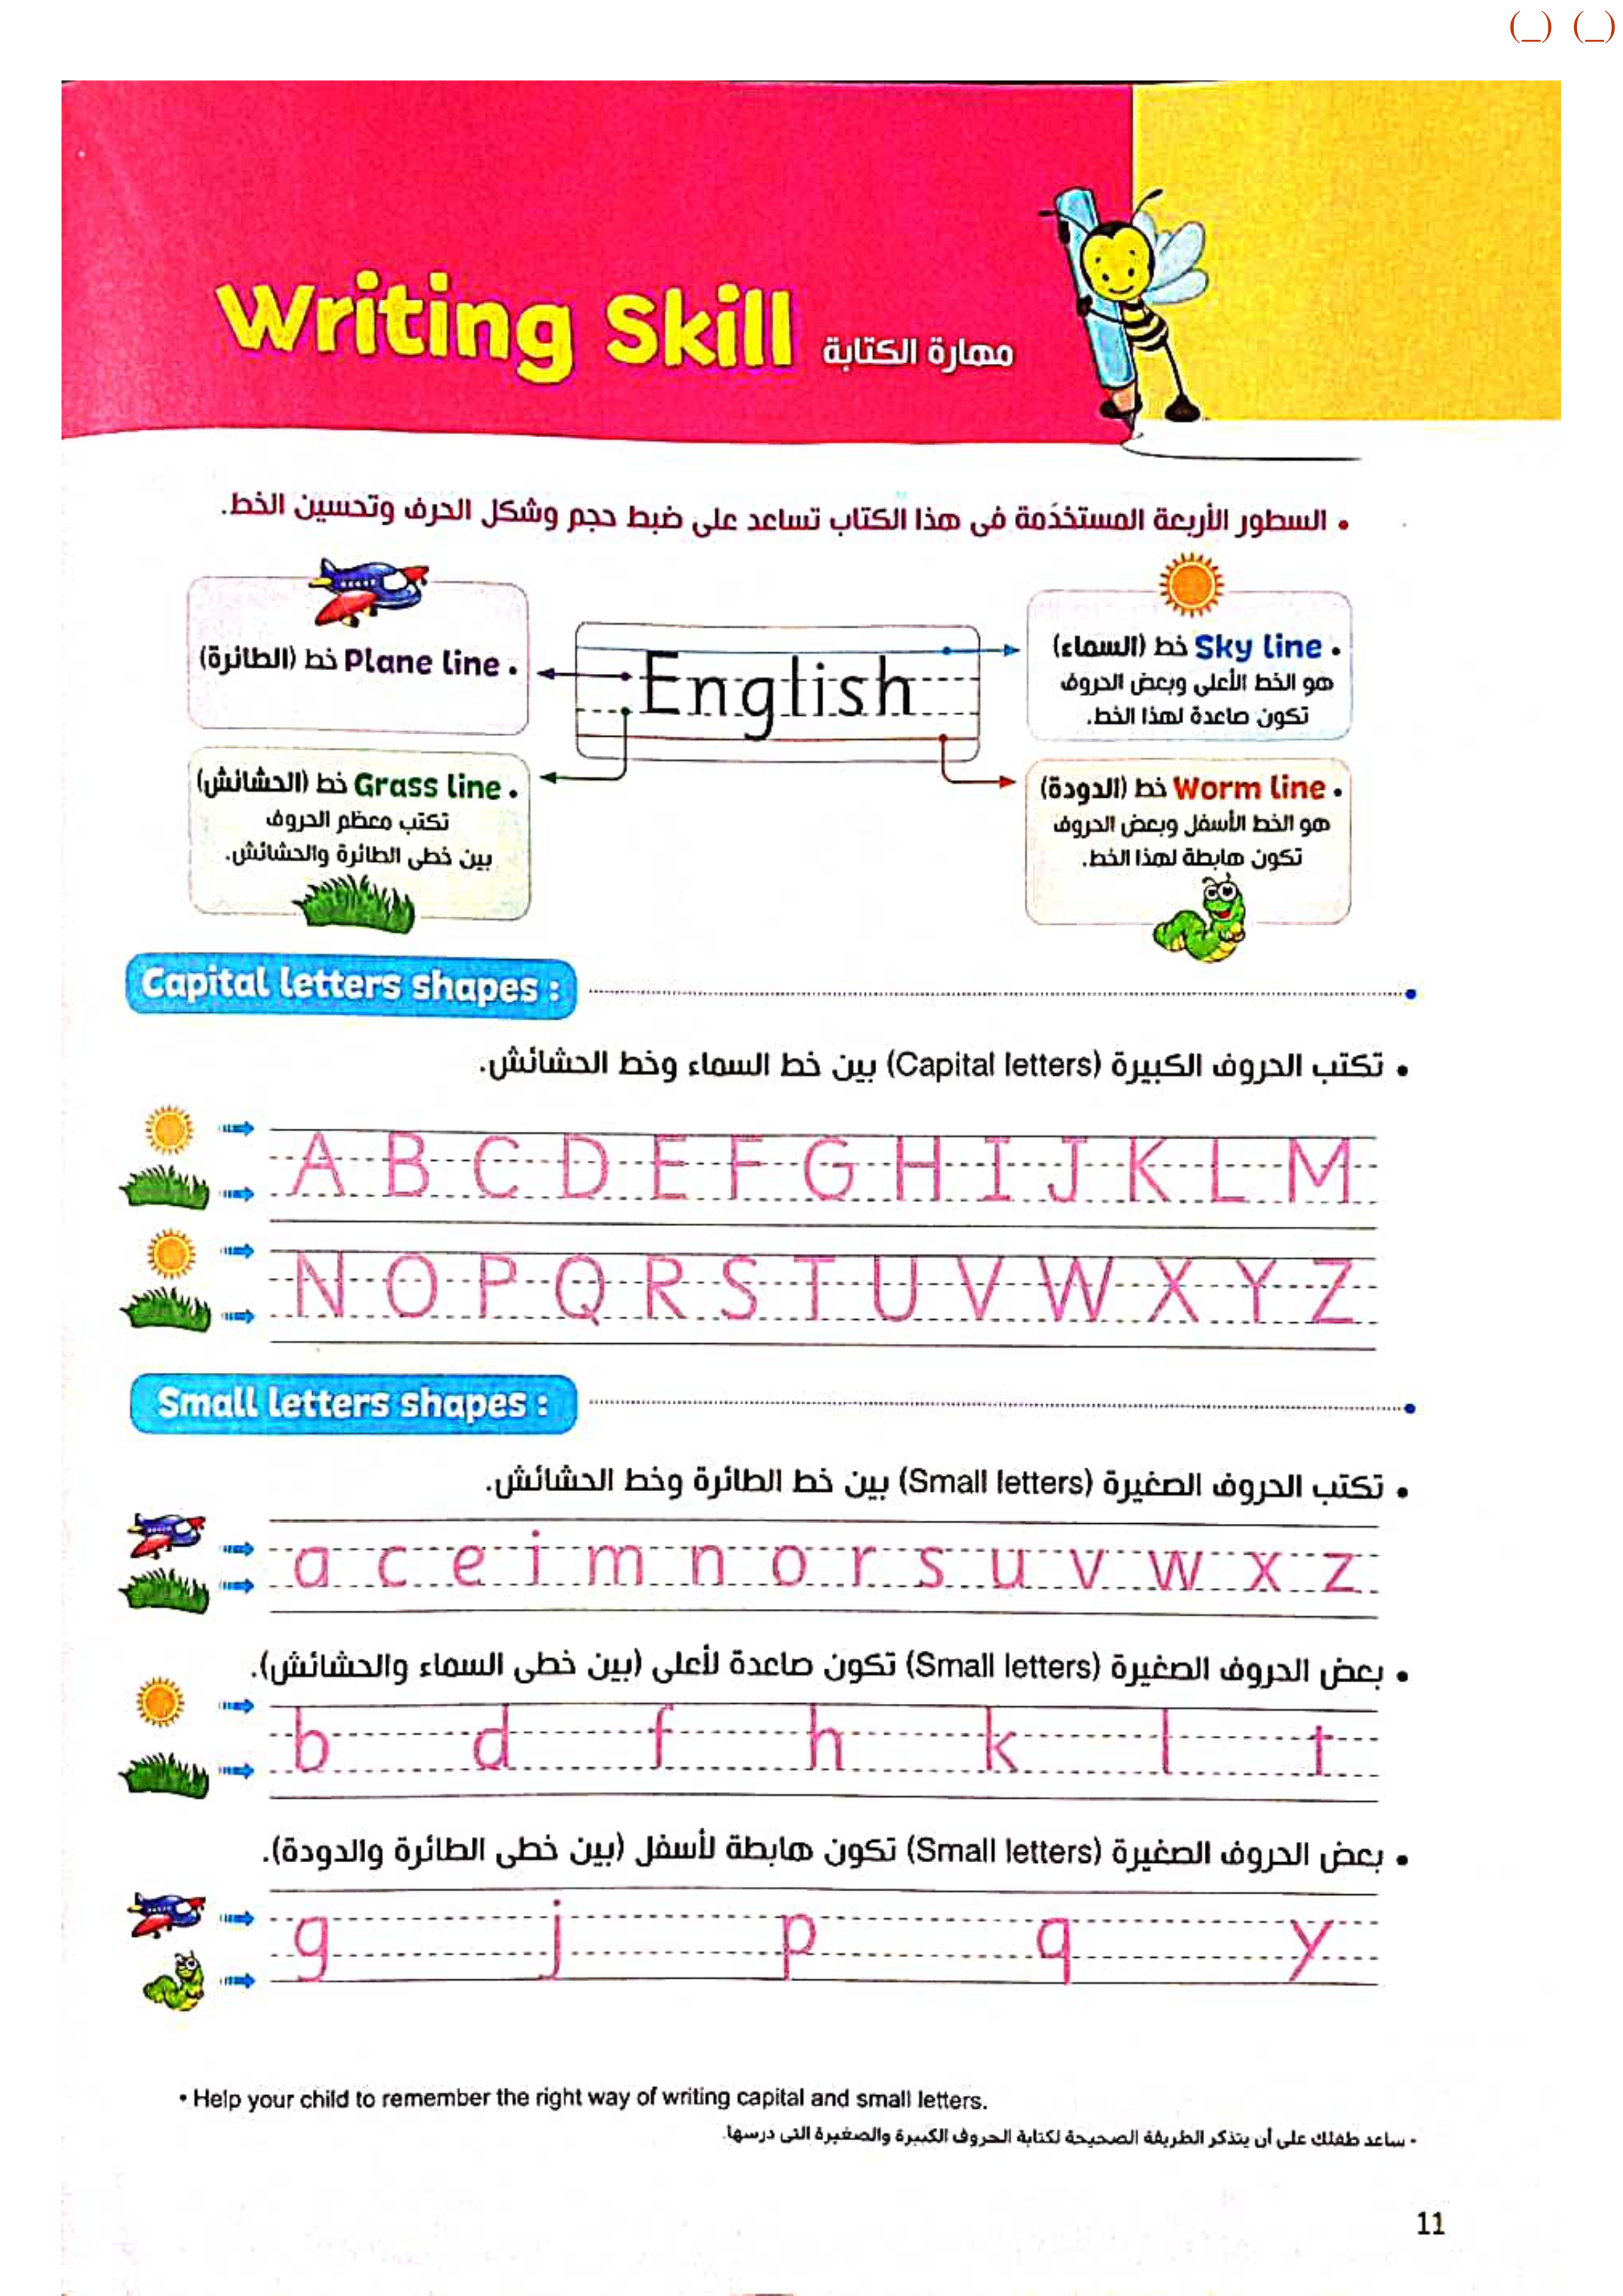 (_) (_)
Writing Skill مهارة الكتابة
• السطور الأربعة المستخدَمة فى هذا الكتاب تساعد على ضبط حجم وشكل الحرف وتحسين الخط.
• Plane line خط (الطائرة)
English
• Sky line خط (السماء)
هو الخط الأعلى وبعض الحروف
تكون صاعدة لهذا الخط.
• Grass line خط (الحشائش)
تكتب معظم الحروف
بين خطى الطائرة والحشائش.
• Worm line خط (الدودة)
هو الخط الأسفل وبعض الحروف
تكون هابطة لهذا الخط.
Capital letters shapes :
• تكتب الحروف الكبيرة (Capital letters) بين خط السماء وخط الحشائش.
A B C D E F G H I J K L M
N O P Q R S T U V W X Y Z
Small letters shapes :
• تكتب الحروف الصغيرة (Small letters) بين خط الطائرة وخط الحشائش.
a c e i m n o r s u v w x z
• بعض الحروف الصغيرة (Small letters) تكون صاعدة لأعلى (بين خطى السماء والحشائش).
b d f h k l t
• بعض الحروف الصغيرة (Small letters) تكون هابطة لأسفل (بين خطى الطائرة والدودة).
g j p q y
• Help your child to remember the right way of writing capital and small letters.
- ساعد طفلك على أن يتذكر الطريقة الصحيحة لكتابة الحروف الكبيرة والصغيرة التى درسها.
11